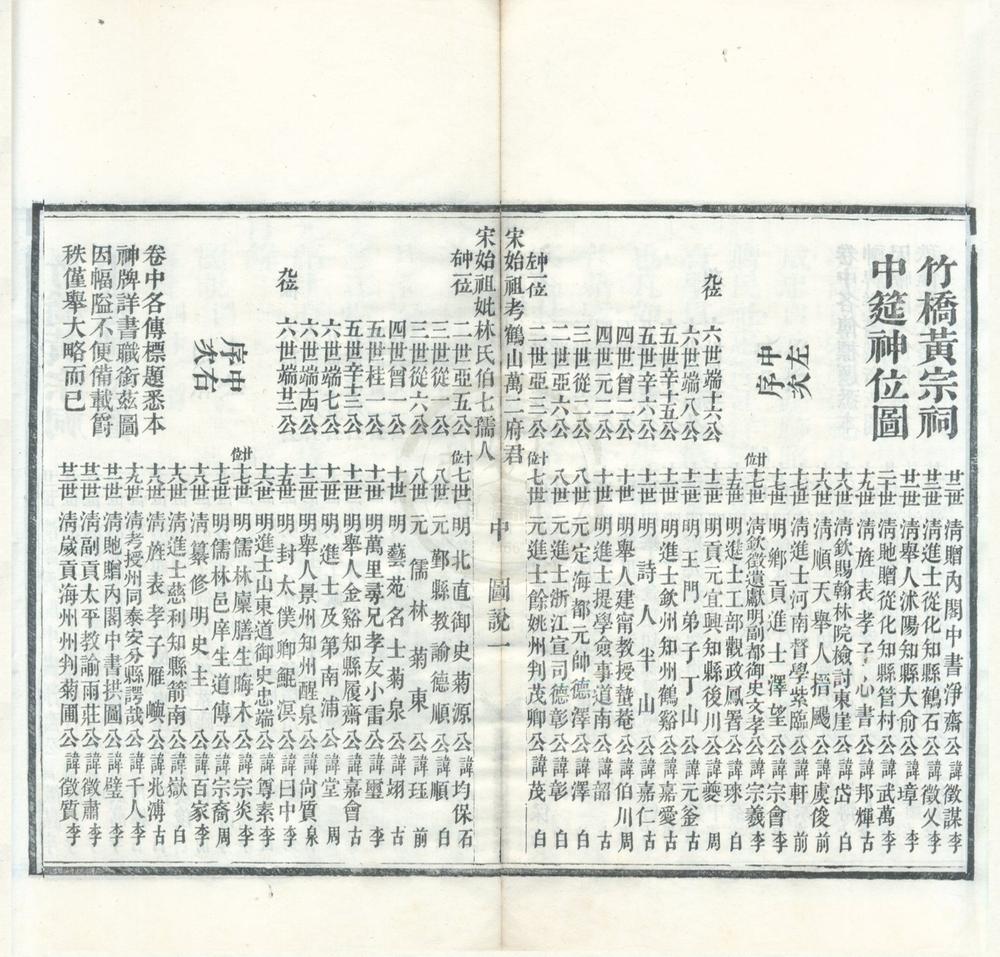 竹橋黃宗祠
中筵神位圖
左
中次
序
廿二世 淸贈內閣中書淨齋公諱徵謀 李
廿三世 淸進士從化知縣鶴石公諱徵乂 李
廿一世 淸舉人沭陽知縣大俞公諱璋 李
二十世 淸貤贈從化知縣管村公諱武萬 李
十九世 淸旌表孝子心書公諱邦輝 古
十八世 淸欽賜翰林院檢討東崖公諱岱 白
十八世 淸順天舉人搢颺公諱虞俊 前
十七世 淸進士河南督學紫臨公諱軒 前
十七世 明鄉貢進士澤望公諱宗會 李
十七世 淸欽徵遺獻明副都御史文孝公諱宗羲 李
十五世 明進士工部觀政鳳署公諱琜 白
六世端十六公 十三世 明貢元宜興知縣後川公諱夔 周
六世端八公 十三世 明王門弟子丁山公諱元釜 古
五世辛十五公 十二世 明進士歙洲知州鶴谿公諱嘉愛 古
五世辛十六公 十二世 明詩人半山公諱嘉仁 古
四世曾二公 十一世 明舉人建甯教授蟄菴公諱伯川 周
四世元二公 十世 明進士提學僉事道南公諱韶 白
三世從二公 八世 元定海都元帥德澤公諱澤 白
二世亞六公 八世 元進士浙江宣司德彰公諱彰 白
二世亞三公 七世 元進士餘姚州判茂卿公諱茂 白
宋始祖考鶴山萬二府君
中 圖說一
宋始祖妣林氏伯七孺人
二世亞五公 七世 明北直御史菊源公諱均保 石
三世從三公 八世 元鄞縣教諭德順公諱順 白
三世從六公 八世 元儒林菊東公諱珏 前
四世曾一公 十世 明藝苑名士菊泉公諱翊 古
五世桂一公 十一世 明萬里尋兄孝友小雷公諱璽 李
五世辛十三公 十二世 明舉人金谿知縣履齋公諱嘉會 古
六世端七公 十二世 明進士及第南浦公諱堂 周
六世端古公 十二世 明舉人景州知州醒泉公諱尚質 泉
六世端廿三公 十五世 明封太僕卿鯤溟公諱日中 李
十六世 明進士山東道御史忠端公諱尊素 李
十七世 明儒林廩膳生晦木公諱宗炎 李
十七世 明儒林邑庠生道傳公諱宗裔 周
十八世 淸纂修明史主一公諱百家 李
十八世 淸進士慈利知縣箭南公諱嶽 白
十八世 淸旌表孝子雁㠘公諱兆溥 古
十九世 淸考授州同泰安分縣諤哉公諱千人 李
廿一世 淸貤贈內閣中書拱圖公諱璧 李
廿二世 淸副貢太平教諭兩莊公諱徵肅 李
廿二世 淸歲貢海州州判菊圃公諱徵質 李
中右
序次
卷中各傳標題悉本
神牌詳書職銜茲圖
因幅隘不便備載爵
秩僅舉大略而已